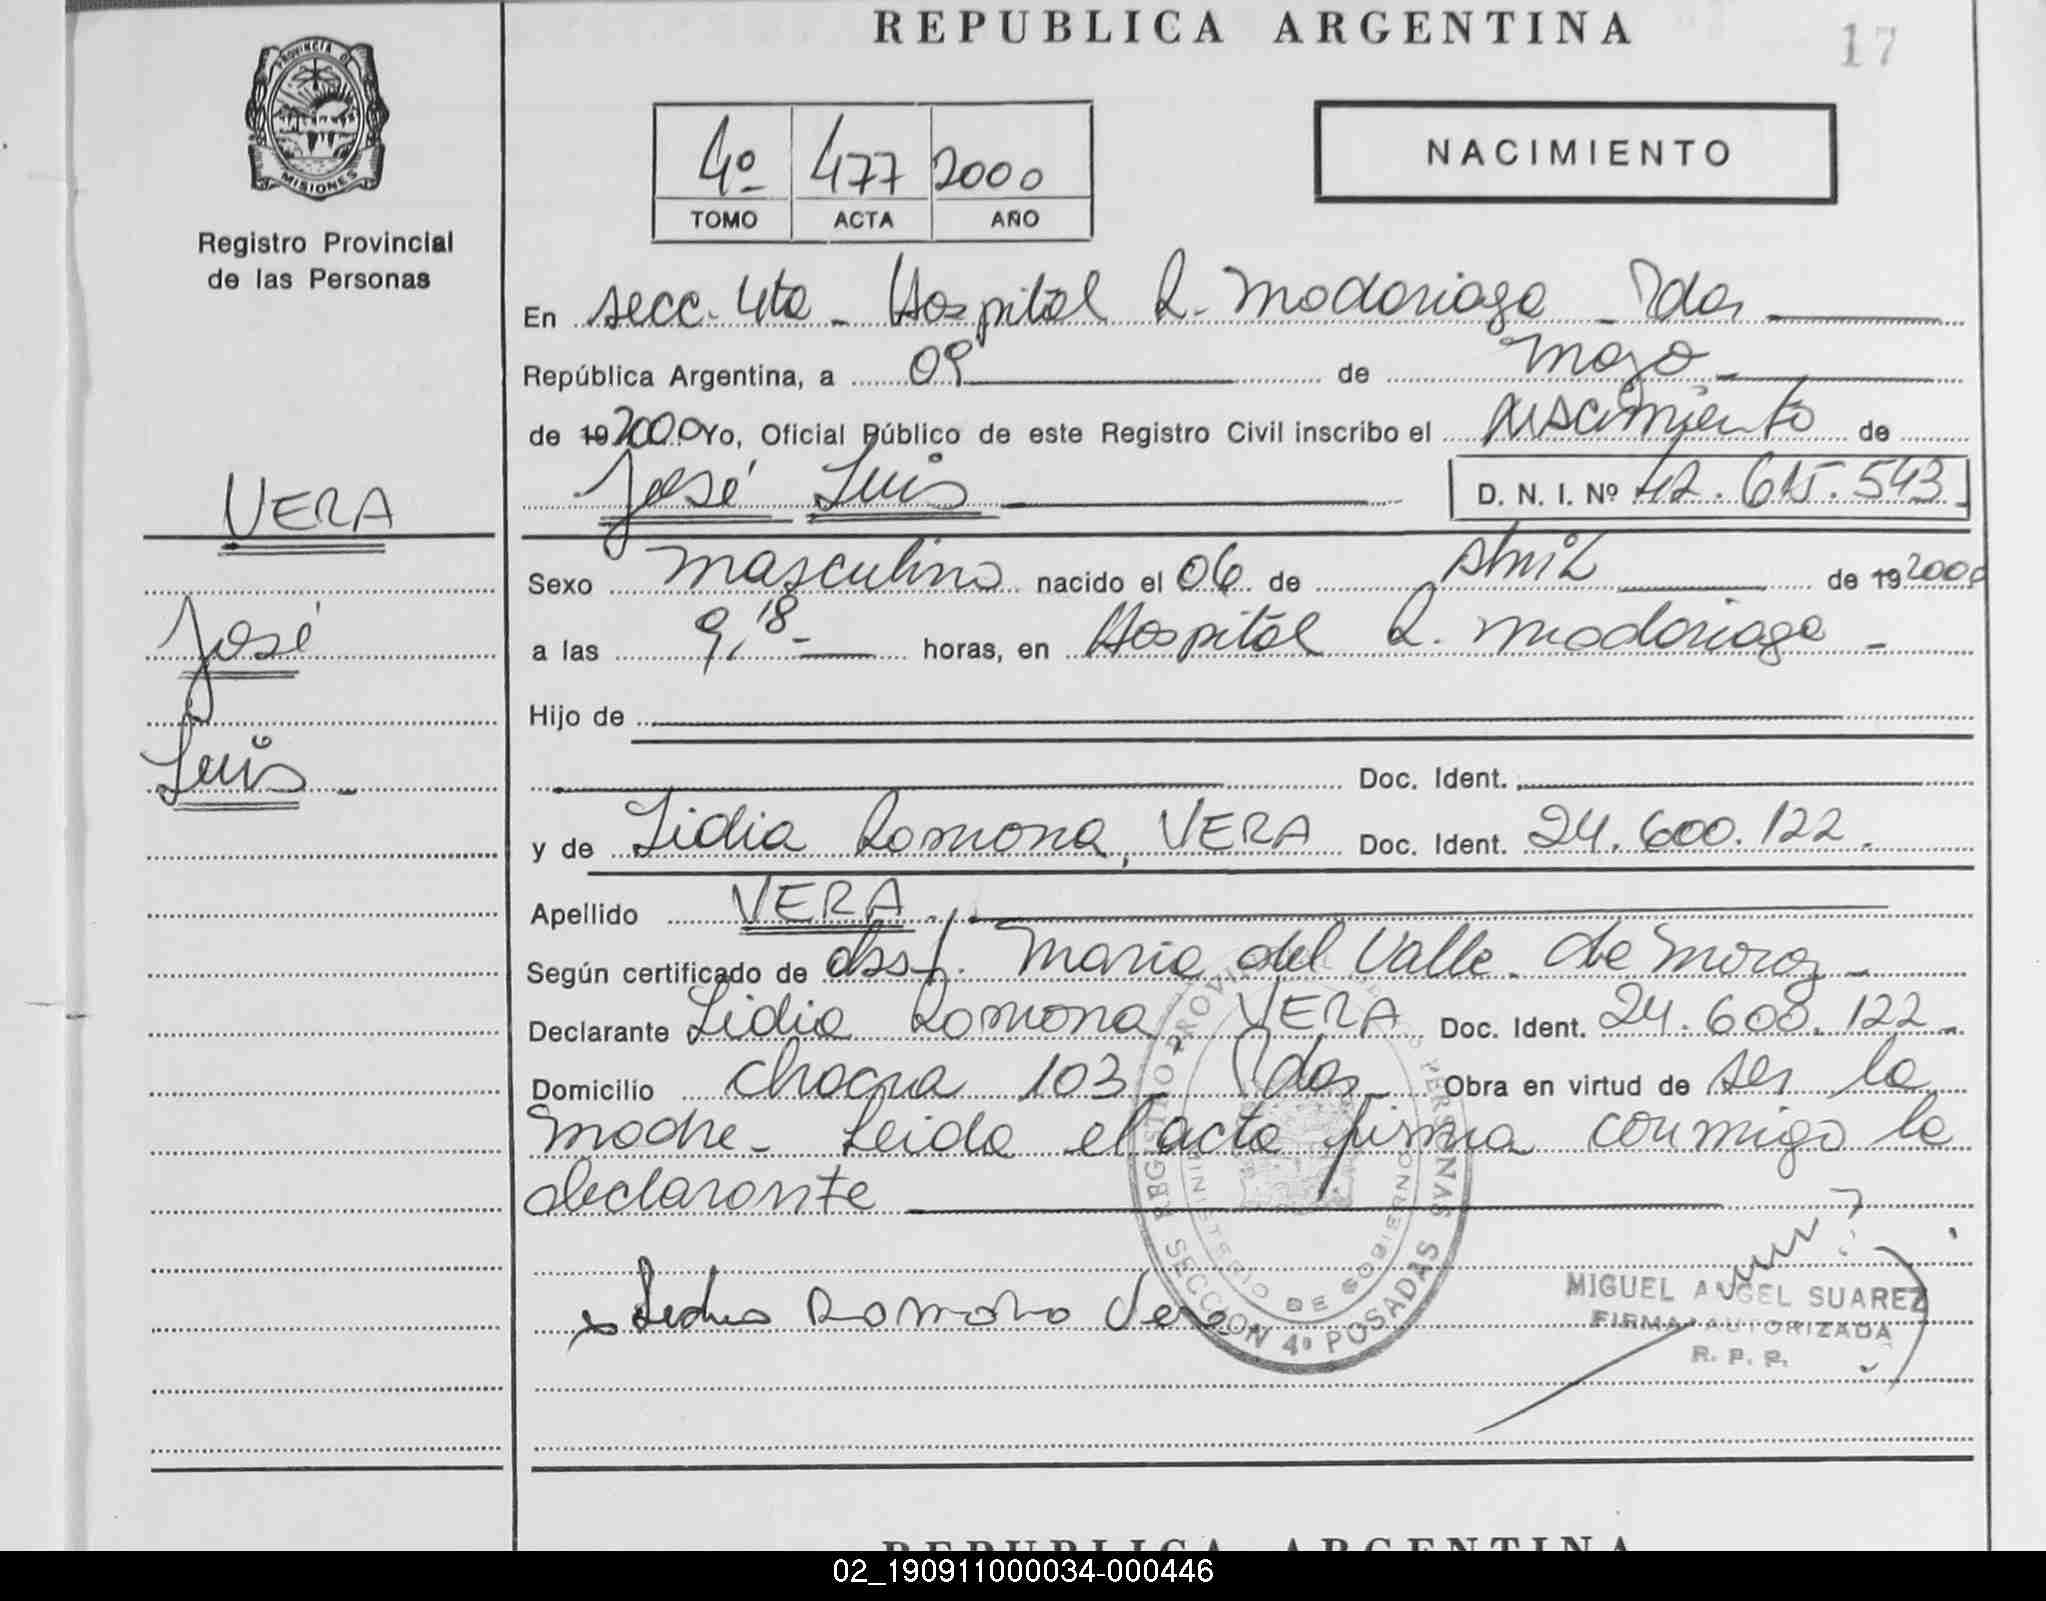 REPUBLICA ARGENTINA
17
PROVINCIA DE
MISIONES
Registro Provincial
de las Personas
4º 477 2000
TOMO ACTA AÑO
NACIMIENTO
En secc. 4ta - Hospital R. Madariaga - Pdas
República Argentina, a 09 de mayo
de 19 2000 Yo, Oficial Público de este Registro Civil inscribo el nacimiento de
José Luis D. N. I. Nº 42.615.543
VERA
José
Luis
Sexo masculino nacido el 06 de Abril de 19 2000
a las 9,18 horas, en Hospital R. Madariaga
Hijo de
Doc. Ident.
y de Lidia Ramona, VERA Doc. Ident. 24.600.122.
Apellido VERA.
Según certificado de obst. Maria del Valle de
Declarante Lidia Ramona VERA Doc. Ident. 24.600.122
Domicilio chacra 103 Pdas Obra en virtud de ser la
madre - Leida el acta firma conmigo la
declarante
Ramona Vera
REGISTRO PROVINCIAL DE PERSONAS
MINISTERIO DE GOBIERNO
SECCION 4ª POSADAS
MIGUEL ANGEL SUAREZ
FIRMA AUTORIZADA
R. P. P.
REPUBLICA ARGENTINA
02_190911000034-000446